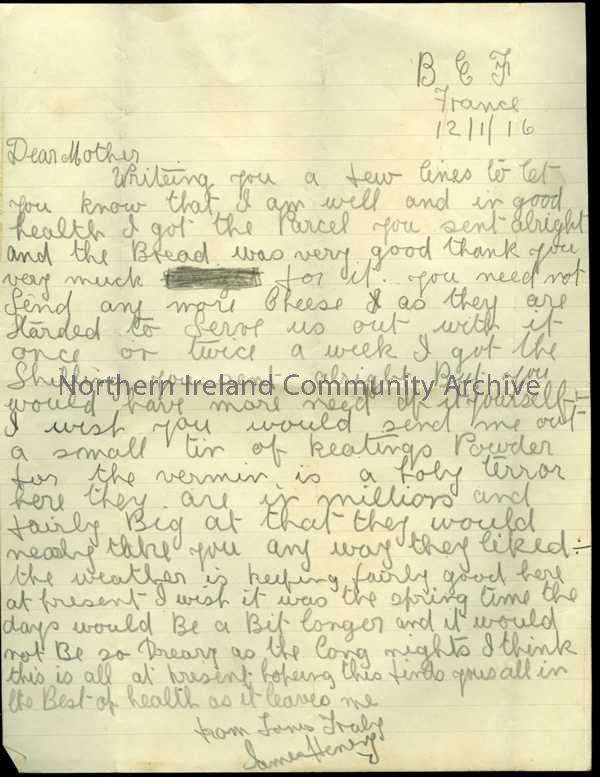 B E F
France
12/1/16
Dear Mother
Writeing you a few lines to let
you know that I am well and in good
health I got the Parcel you sent alright
and the Bread was very good thank you
very much for it. you need not
Send any more Cheese I as they are
Starded to Serve us out with it
once or twice a week I got the
Shilling you sent alright But you
Northern Ireland Community Archive
would have more need of it yourself-
I wish you would send me out
a small tin of Keatings Powder
for the vermin is a holy terror
here they are in millions and
fairly Big at that they would
nearly take you any way they liked:-
the weather is keeping fairly good here
at present I wish it was the spring time the
days would Be a Bit longer and it would
not Be so Dreary as the long nights I think
this is all at present hopeing this finds you all in
the Best of health as it leaves me
from Yours Truly
James Henry